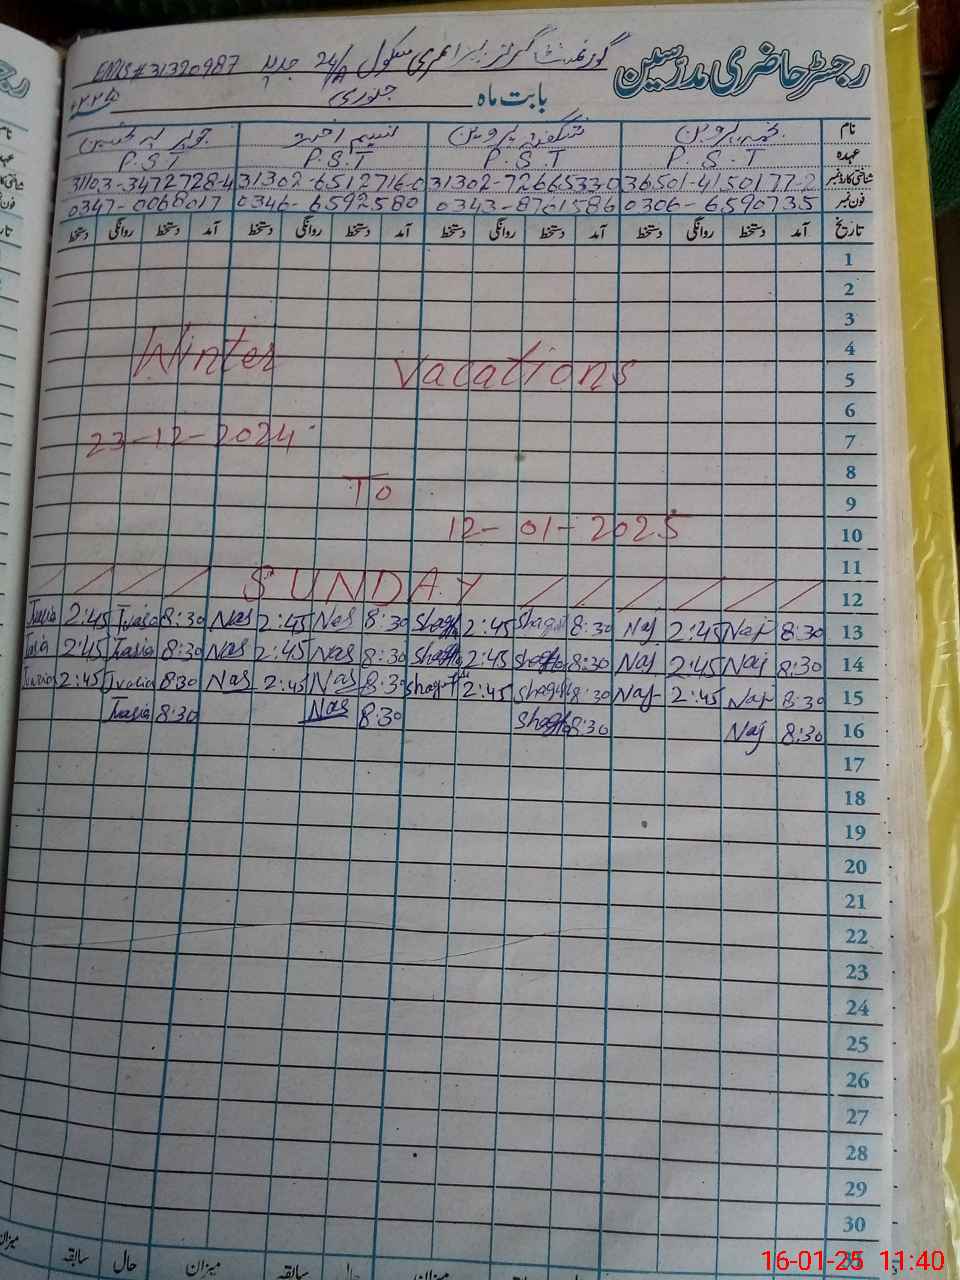 رجسٹر حاضری مدرسین
گورنمنٹ گرلز پرائمری سکول 24/A جدید EMIS # 31320987
بابت ماہ جنوری
نام نجمہ پروین شگفتہ پروین نسیم اختر
عہدہ P.S.T P.S.T P.S.T P.S.T
شناختی کارڈ نمبر 36501-4150177-2 31302-7266533-0 31302-6512716-0 31103-3472728-4
فون نمبر 0306-6590735 0343-8701586 0346-6592580 0347-0068017
تاریخ آمد دستخط روانگی دستخط آمد دستخط روانگی دستخط آمد دستخط روانگی دستخط آمد دستخط روانگی دستخط
1
2
3
4
Winter Vacations
5
6
23-12-2024
7
8
To
9
12-01-2025
10
11
SUNDAY
12
13 8:30 Naj 2:45 Naj 8:30 Shagufta 2:45 Shagufta 8:30 Nas 2:45 Nas 8:30 2:45
14 8:30 Naj 2:45 Naj 8:30 2:45 8:30 Nas 2:45 Nas 8:30 2:45
15 8:30 Naj 2:45 Naj 8:30 2:45 8:30 Nas 2:45 Nas 8:30 2:45
16 8:30 Naj 8:30 8:30 Nas 8:30
17
18
19
20
21
22
23
24
25
26
27
28
29
30
میزان حال سابقہ میزان حال سابقہ
16-01-25 11:40